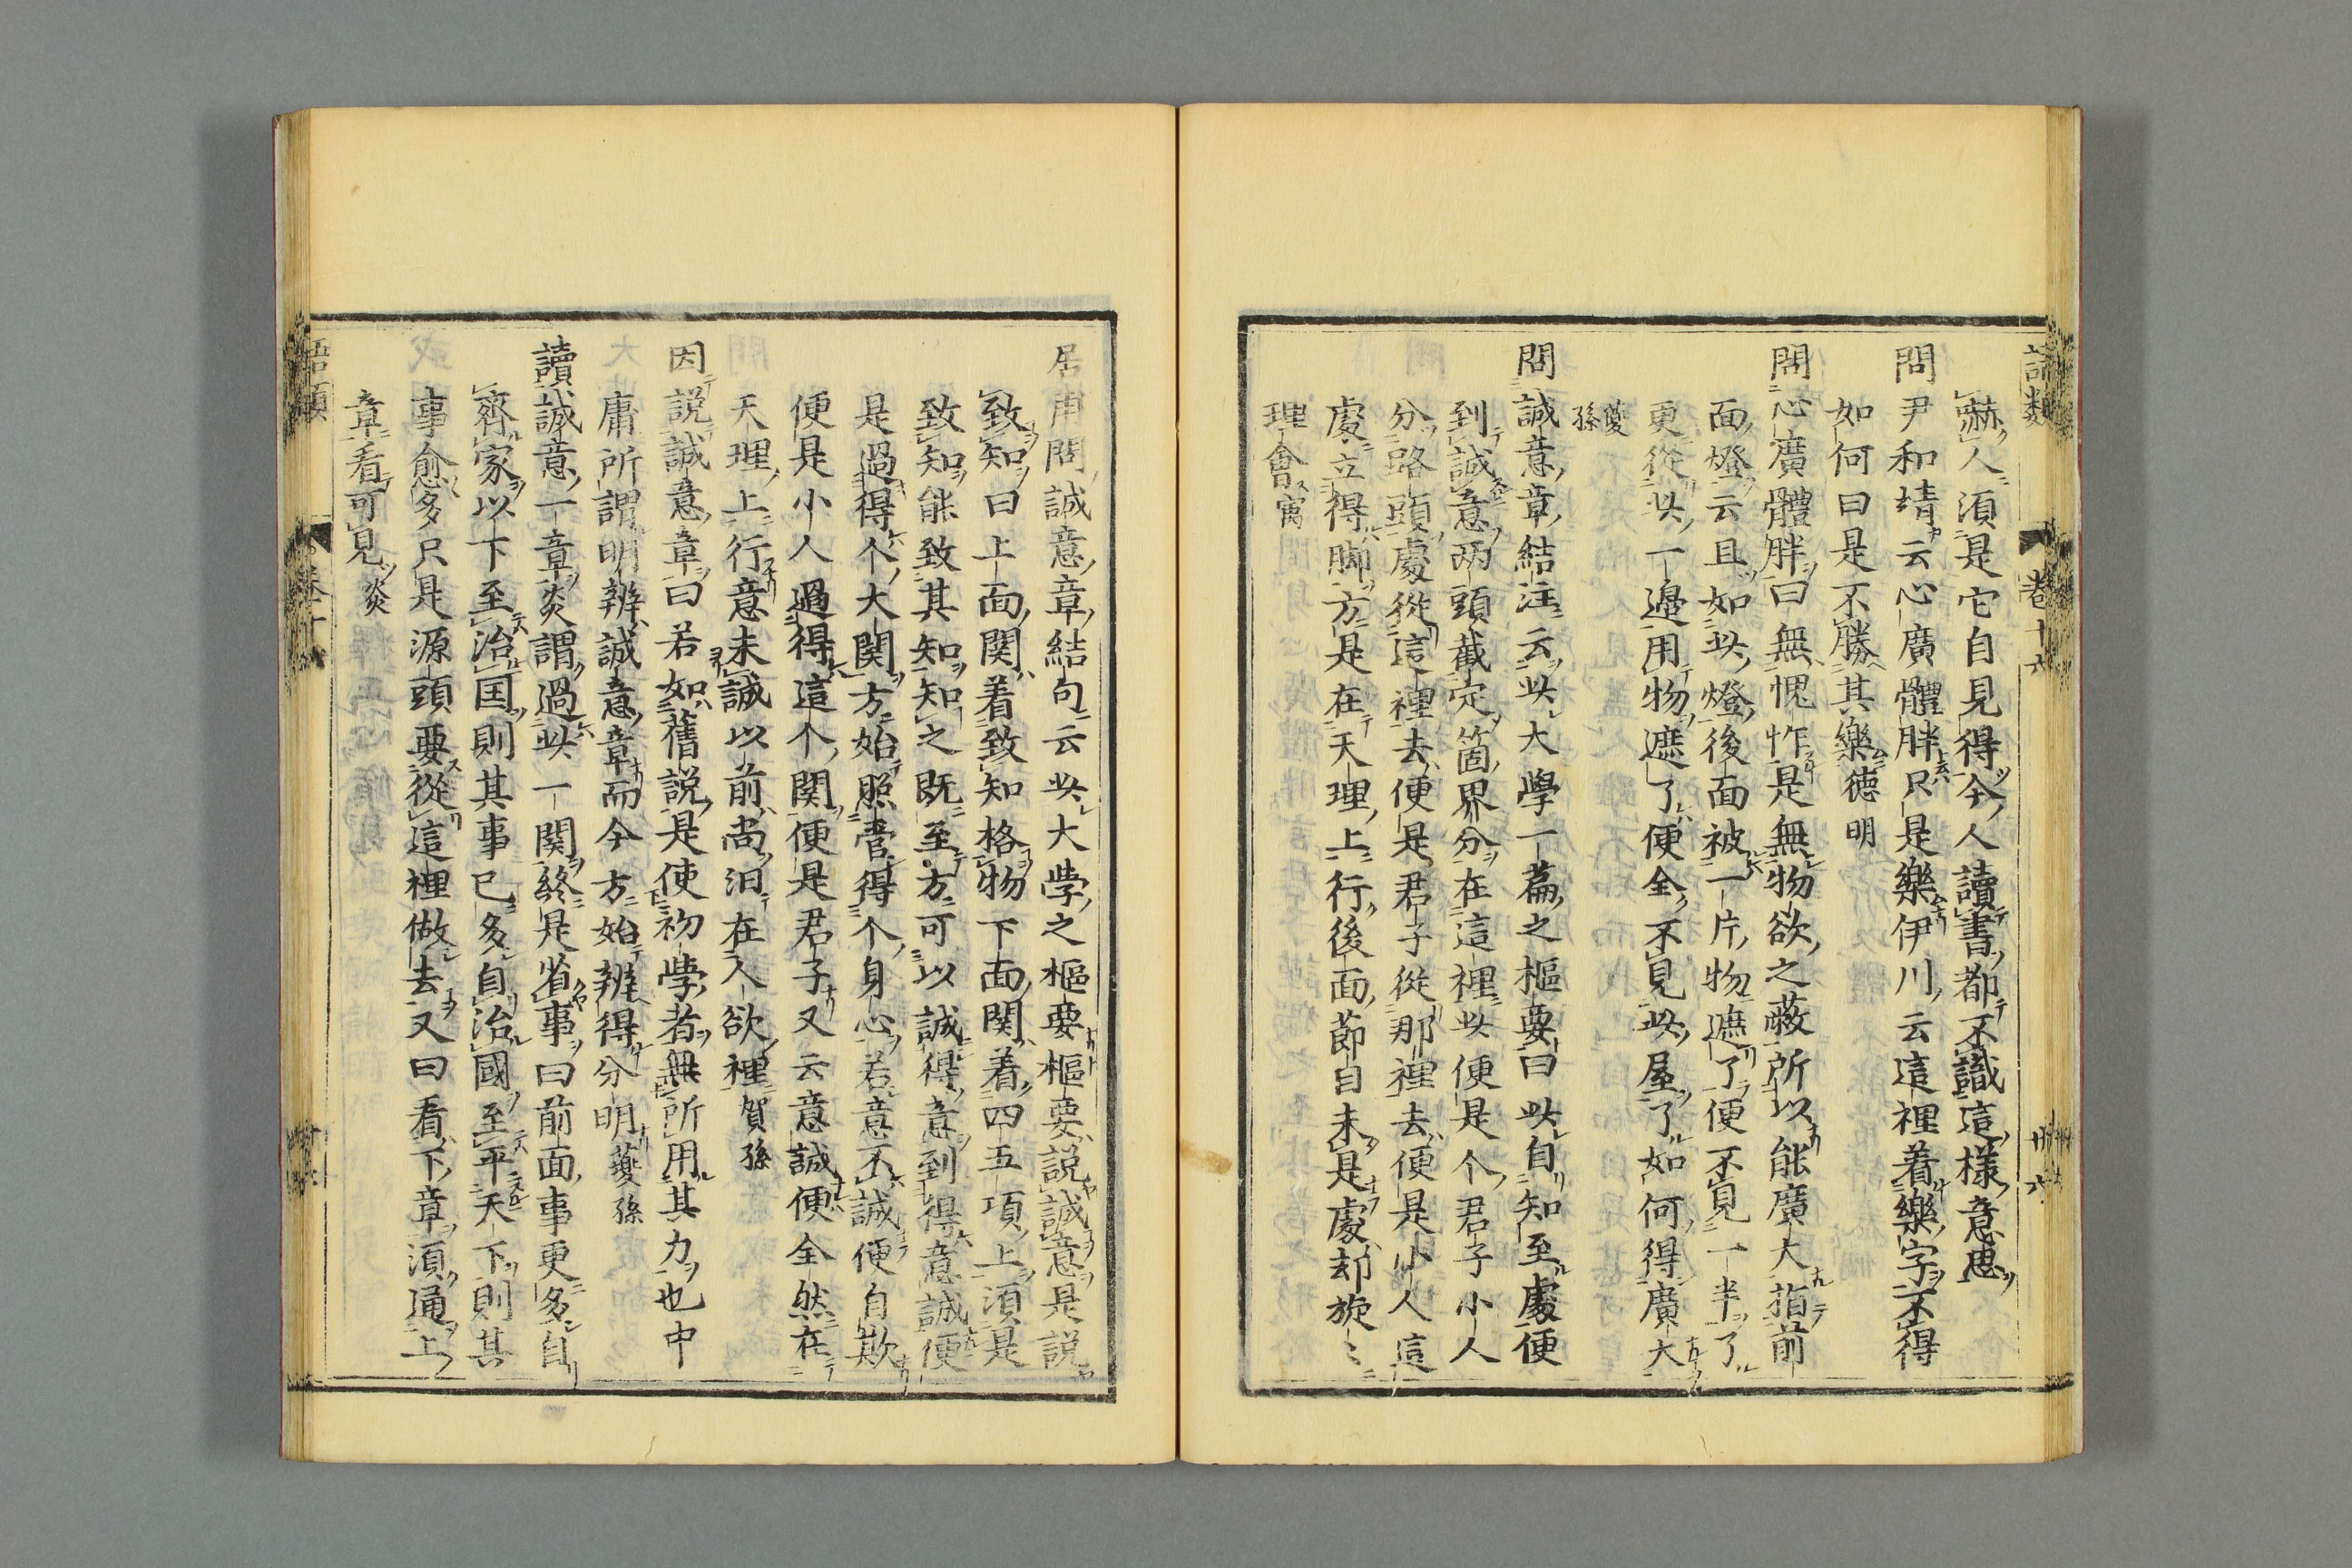 語類 卷十六 廿六
嚇人須是它自見得今人讀書都不識這樣意思
問尹和靖云心廣體胖只是樂伊川云這裡着樂字不得
如何曰是不勝其樂德明
問心廣體胖曰無愧怍是無物欲之蔽所以能廣大指前
面燈云且如此燈後面被一片物遮了便不見一半了
更從此一邊用物遮了便全不見此屋了如何得廣大
夔孫
問誠意章結注云此大學一篇之樞要曰此自知至處便
到誠意两頭截定箇界分在這裡此便是个君子小人
分路頭處從這裡去便是君子從那裡去便是小人這
處立得脚方是在天理上行後面節目未是處却旋〻
理會㝢
居甫問誠意章結句云此大斈之樞要樞要説誠意是説
致知曰上面関着致知格物下面関着四五項上湏是
致知能致其知知之既至方可以誠得意到得意誠便
是過得个大関方始照管得个身心若意不誠便自欺
便是小人過得這个関便是君子又云意誠便全然在
天理上行意未誠以前尚汩在人欲裡賀孫
因説誠意章曰若如舊説是使初斈者無所用其力也中
庸所謂明辨誠意章而今方始辨得分明夔孫
讀誠意一章炎謂過此一関終是省事曰前面事更多自
齊家以下至治国則其事已多自治國至平天下則其
事愈多只是源頭要從這裡做去又曰看下章湏通上
章看可見炎
語類 卷十六